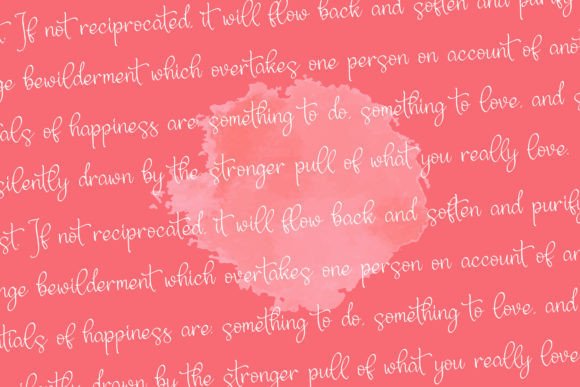 st. If not reciprocated, it will flow back and soften and purify
nge bewilderment which overtakes one person on account of ano
tials of happiness are: something to do, something to love, and s
silently drawn by the stronger pull of what you really love.
st. If not reciprocated, it will flow back and soften and purif
nge bewilderment which overtakes one person on account of an
ntials of happiness are: something to do, something to love, and
ilently drawn by the stronger pull of what you really love